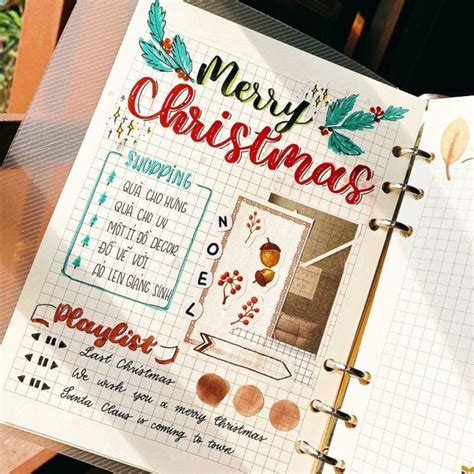 Merry
Christmas
SHOPPING
QUÀ CHO HƯNG
QUÀ CHO UV
MỘT TÍ ĐỒ DECOR
ĐỒ VẼ VỜI
ÁO LEN GIÁNG SINH
NOEL
Playlist
Last Christmas
We wish you a merry Christmas
Santa Claus is coming to town